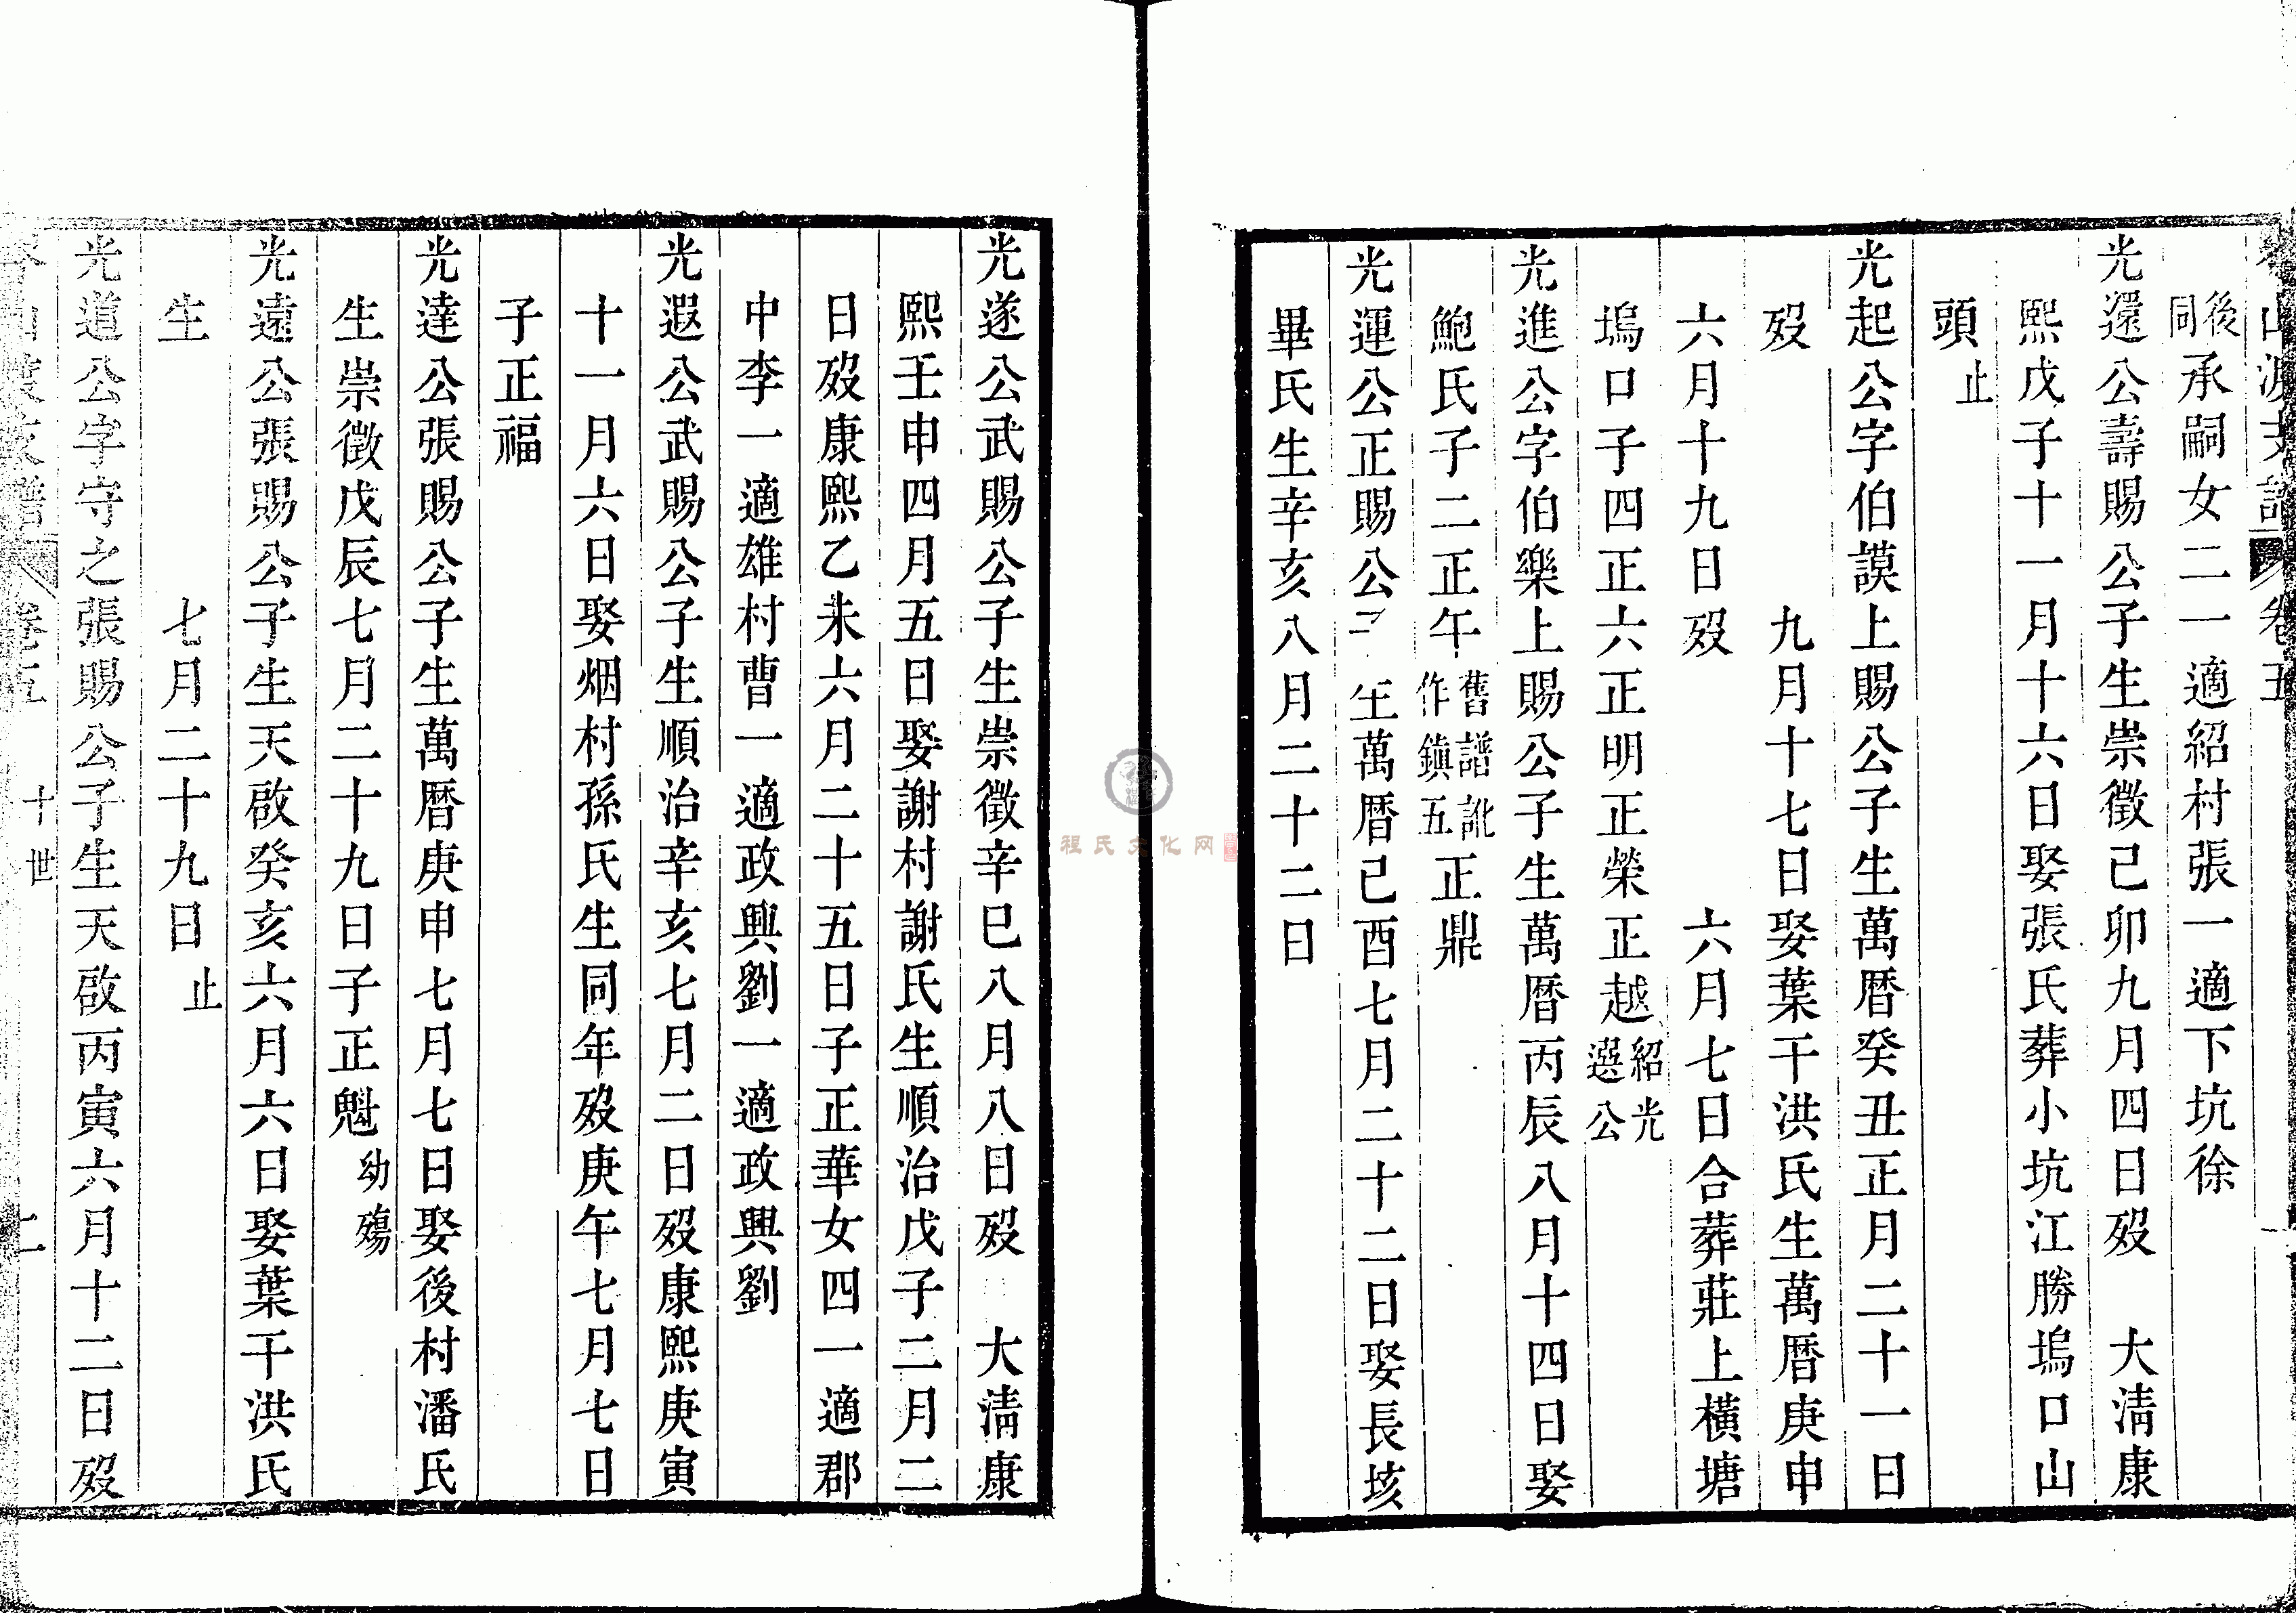 山渡支譜 卷五
後同承嗣女二一適紹村張一適下坑徐
光還公壽賜公子生崇徵己卯九月四日歿 大清康
熙戊子十一月十六日娶張氏葬小坑江勝塢口山
頭止
光起公字伯謨上賜公子生萬曆癸丑正月二十一日
歿 九月十七日娶葉干洪氏生萬曆庚申
六月十九日歿 六月七日合葬莊上橫塘
塢口子四正六正明正榮正越紹光選公
光進公字伯樂上賜公子生萬曆丙辰八月十四日娶
鮑氏子二正午舊譜訛作鎮五正鼎
光運公正賜公子 生萬曆己酉七月二十二日娶長垓
畢氏生辛亥八月二十二日
光遂公武賜公子生崇徵辛巳八月八日歿 大清康
熙壬申四月五日娶謝村謝氏生順治戊子二月二
日歿康熙乙未六月二十五日子正華女四一適郡
中李一適雄村曹一適政興劉一適政興劉
光遐公武賜公子生順治辛亥七月二日歿康熙庚寅
十一月六日娶烟村孫氏生同年歿庚午七月七日
子正福
光達公張賜公子生萬曆庚申七月七日娶後村潘氏
生崇徵戊辰七月二十九日子正魁幼殤
光遠公張賜公子生天啟癸亥六月六日娶葉干洪氏
生 七月二十九日止
光道公字守之張賜公子生天啟丙寅六月十二日歿
山渡支譜 卷五 十世 二
程氏文化网